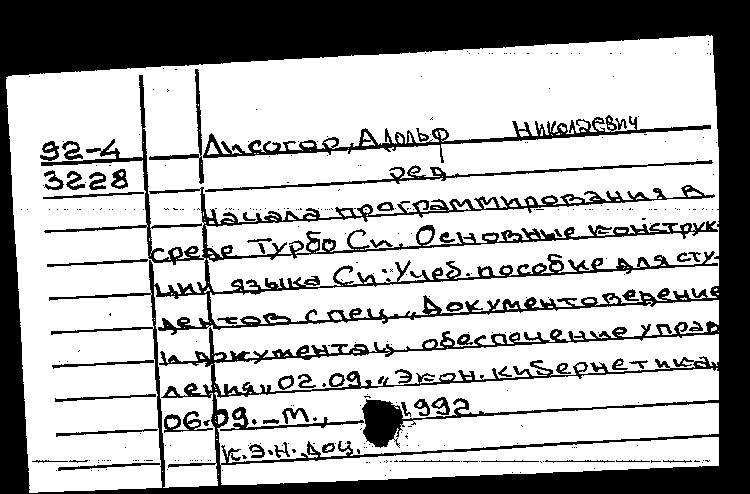 92-4 Лисогор, Адольф Николаевич
3228 ред.
Начала программирования в
среде Турбо Си. Основные конструк-
ции языка Си: Учеб. пособие для сту-
дентов спец. „Документоведение
и документац. обеспечение управ
ления„ 02.09, „Экон. кибернетика„
06.09. – М., 1992.
к.э.н. доц.